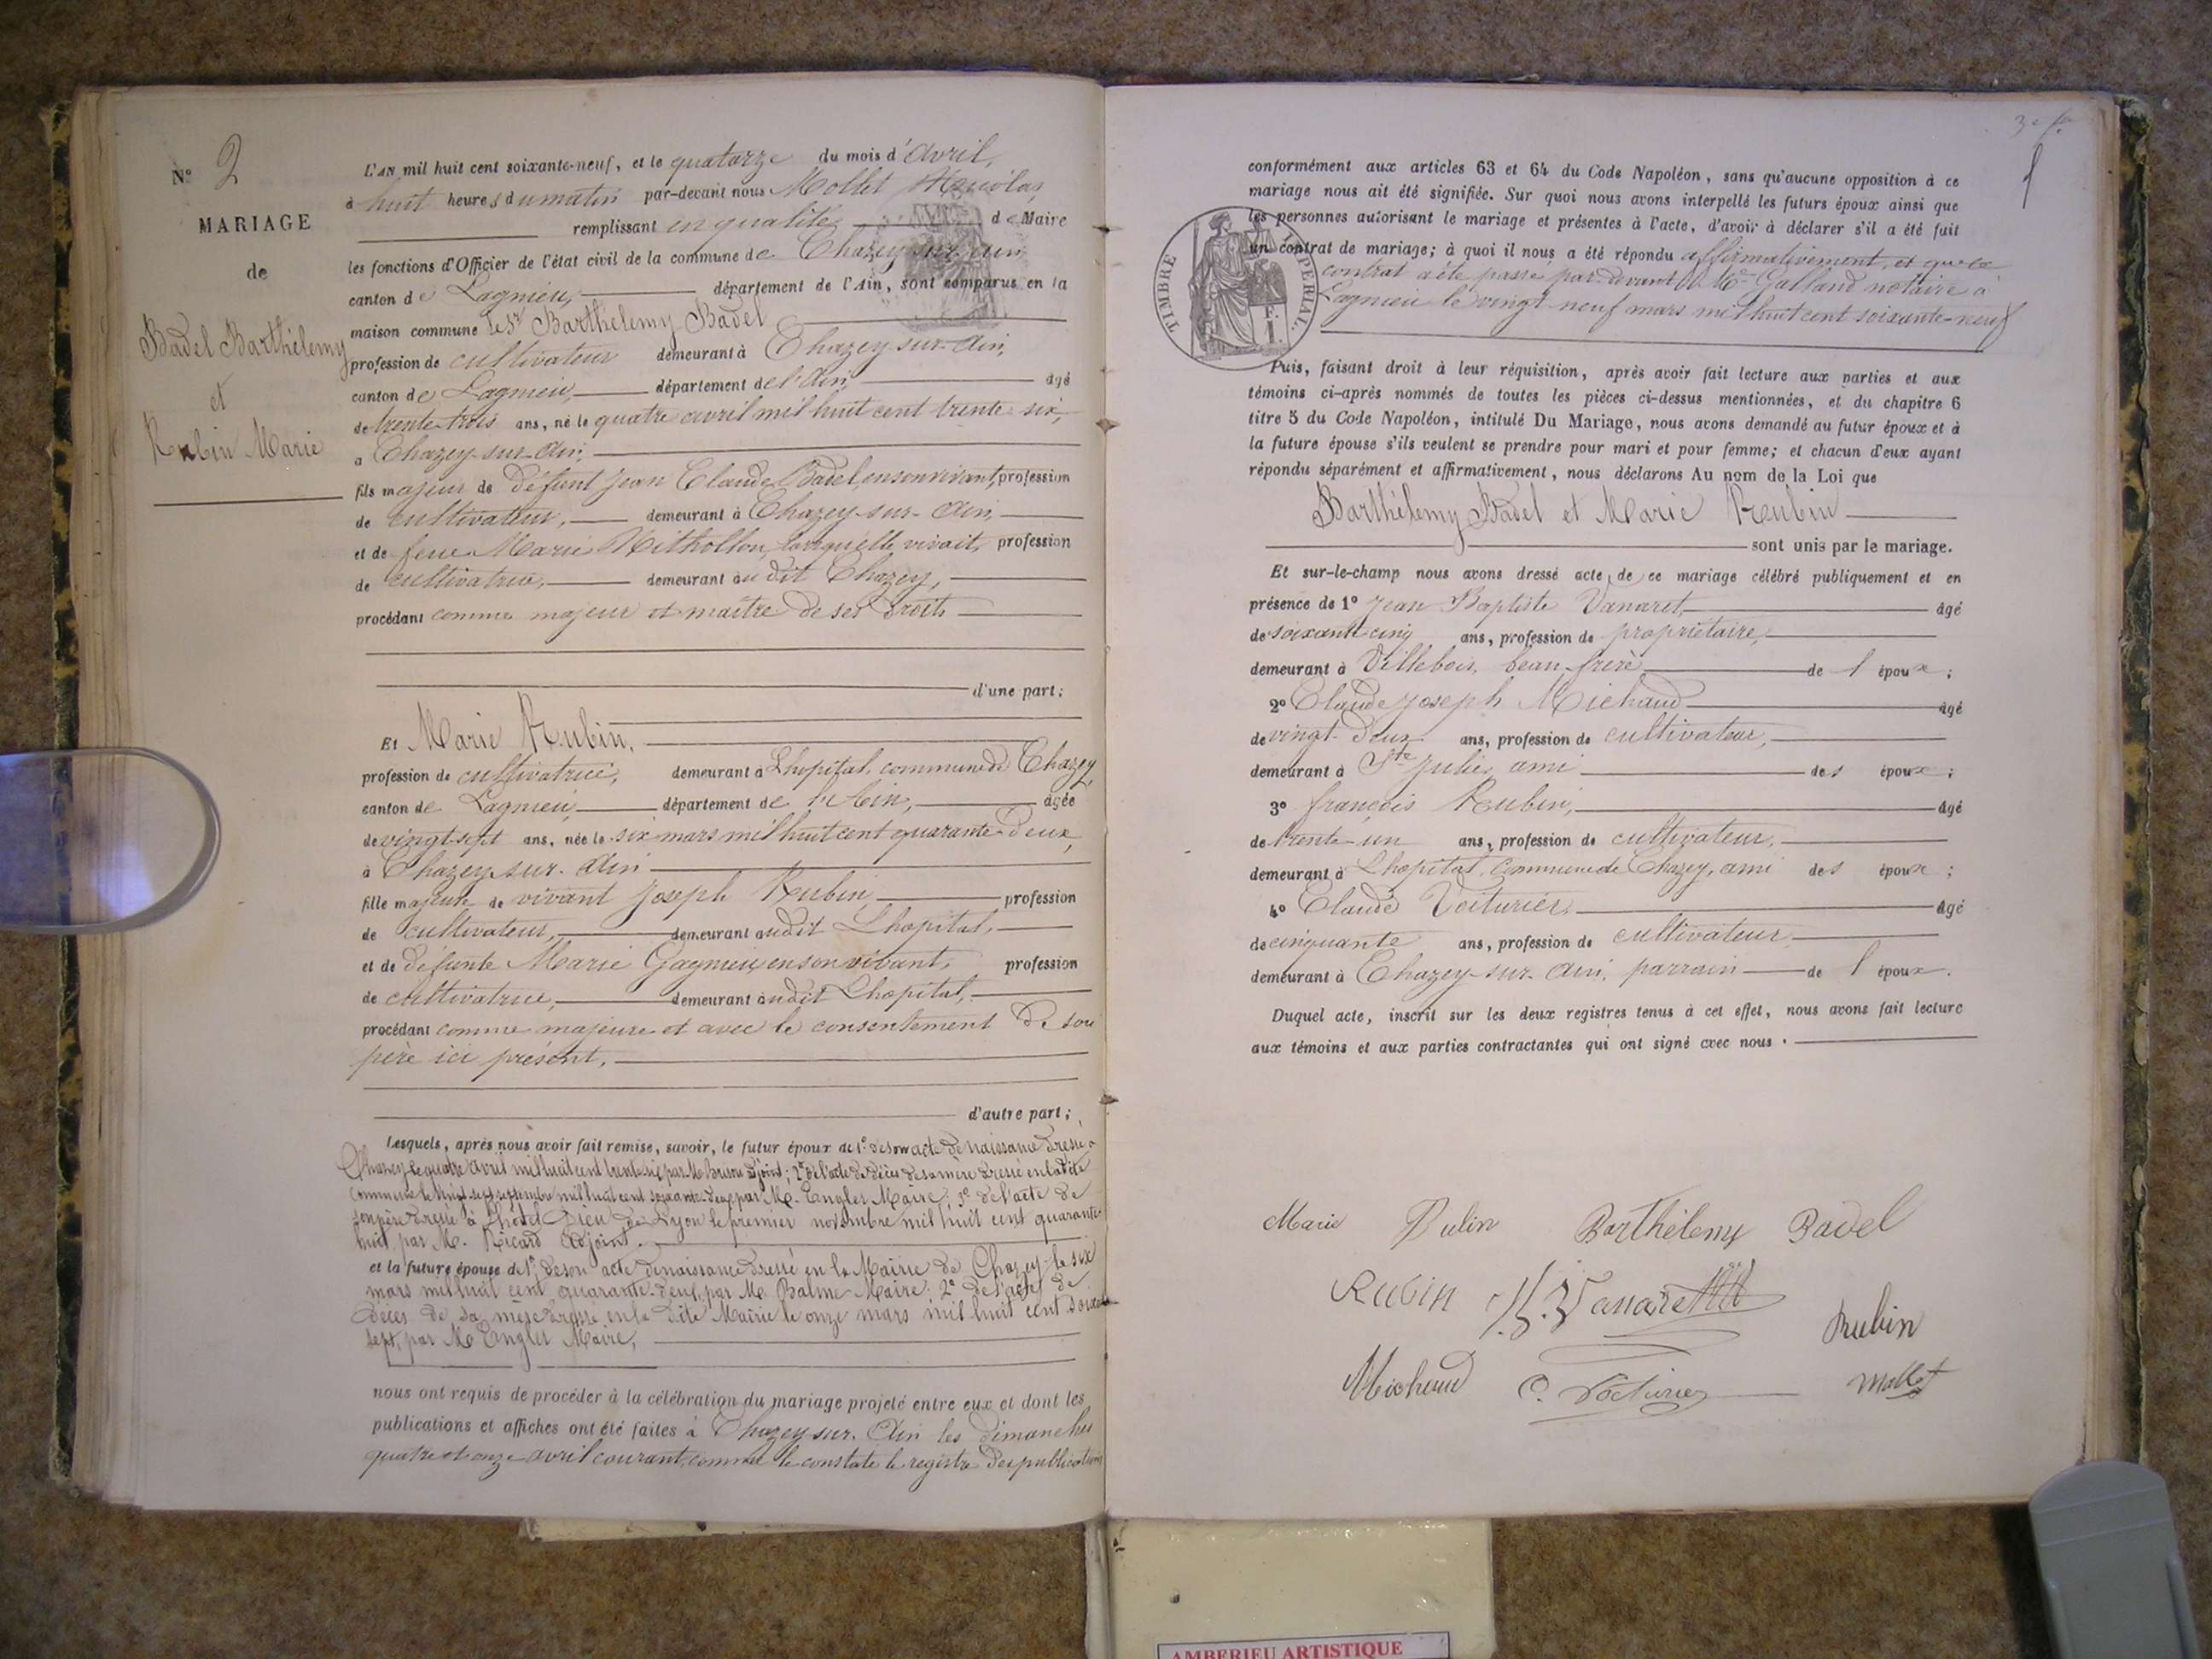 N° 2
MARIAGE
de
Badel Barthélemy
et
Rubin Marie
L'AN mil huit cent soixante-neuf, et le quatorze du mois d'Avril,
à huit heures du matin par-devant nous Mollet Nicolas,
remplissant en qualité de Maire
les fonctions d'Officier de l'état civil de la commune de Chazey-sur-Ain,
canton de Lagnieu, département de l'Ain, sont comparus en la
maison commune le Sr Barthélemy Badel
profession de cultivateur demeurant à Chazey-sur-Ain,
canton de Lagnieu, département de l'Ain, âgé
de trente-trois ans, né le quatre avril mil huit cent trente-six,
à Chazey-sur-Ain,
fils majeur de défunt Jean Claude Badel, en son vivant, profession
de cultivateur, demeurant à Chazey-sur-Ain,
et de feue Marie lorsqu'elle vivait, profession
de cultivatrice, demeurant au dit Chazey,
procédant comme majeur et maître de ses droits
d'une part;
Et Marie Rubin,
profession de cultivatrice, demeurant à Lhopital, commune de Chazey,
canton de Lagnieu, département de l'Ain, âgée
de vingt-sept ans, née le six mars mil huit cent quarante-deux,
à Chazey-sur-Ain
fille majeure de vivant Joseph Rubin, profession
de cultivateur, demeurant audit Lhopital,
et de défunte Marie Gagnieu en son vivant, profession
de cultivatrice, demeurant audit Lhopital,
procédant comme majeure et avec le consentement de son
père ici présent,
d'autre part;
Lesquels, après nous avoir fait remise, savoir, le futur époux de 1° de son acte de naissance dressé à
Chazey le quatre avril mil huit cent trente six par M. adjoint; 2° de l'acte de décès de sa mère dressé en la dite
commune le vingt-sept septembre mil huit cent soixante-deux par M. Engler Maire; 3° de l'acte de
son père dressé à l'hôtel Dieu de Lyon le premier novembre mil huit cent quarante-
huit, par M. Ricard adjoint.
et la future épouse de 1° de son acte de naissance dressé en la Mairie de Chazey le six
mars mil huit cent quarante-deux, par M. Balme Maire; 2° de l'acte de
décès de sa mère dressé en la dite Mairie le onze mars mil huit cent soixante
sept, par M. Engler Maire,
nous ont requis de procéder à la célébration du mariage projeté entre eux et dont les
publications et affiches ont été faites à Chazey-sur-Ain les dimanches
quatre et onze avril courant, comme le constate le registre des publications
conformément aux articles 63 et 64 du Code Napoléon, sans qu'aucune opposition à ce
mariage nous ait été signifiée. Sur quoi nous avons interpellé les futurs époux ainsi que
les personnes autorisant le mariage et présentes à l'acte, d'avoir à déclarer s'il a été fait
un contrat de mariage; à quoi il nous a été répondu affirmativement, et que ce
contrat a été passé par-devant Me Galland notaire à
Lagnieu le vingt-neuf mars mil huit cent soixante-neuf
TIMBRE IMPERIAL.
1 F.
Puis, faisant droit à leur réquisition, après avoir fait lecture aux parties et aux
témoins ci-après nommés de toutes les pièces ci-dessus mentionnées, et du chapitre 6
titre 5 du Code Napoléon, intitulé Du Mariage, nous avons demandé au futur époux et à
la future épouse s'ils veulent se prendre pour mari et pour femme; et chacun d'eux ayant
répondu séparément et affirmativement, nous déclarons Au nom de la Loi que
Barthélemy Badel et Marie Rubin
sont unis par le mariage.
Et sur-le-champ nous avons dressé acte de ce mariage célébré publiquement et en
présence de 1° Jean Baptiste Vanaret, âgé
de soixante cinq ans, profession de propriétaire,
demeurant à Villebois, beau-frère de l'époux;
2° Claude Joseph Michaud âgé
de vingt-deux ans, profession de cultivateur,
demeurant à Ste Julie, ami des époux;
3° françois Rubin, âgé
de trente-un ans, profession de cultivateur,
demeurant à Lhopital, commune de Chazey, ami des époux;
4° Claude Voiturier, âgé
de cinquante ans, profession de cultivateur,
demeurant à Chazey-sur-Ain, parrain de l'époux.
Duquel acte, inscrit sur les deux registres tenus à cet effet, nous avons fait lecture
aux témoins et aux parties contractantes qui ont signé avec nous.
Marie Rubin Barthélemy Badel
Rubin J. B. Vanaret
Rubin
Michaud C. Voiturier Mollet
AMBERIEU ARTISTIQUE